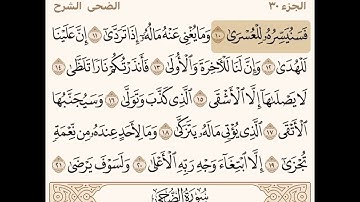 الجزء ٣٠ الضحى الشرح
فَسَنُيَسِّرُهُۥ لِلْعُسْرَىٰ ١٠ وَمَا يُغْنِى عَنْهُ مَالُهُۥٓ إِذَا تَرَدَّىٰٓ ١١ إِنَّ عَلَيْنَا
لَلْهُدَىٰ ١٢ وَإِنَّ لَنَا لَلْءَاخِرَةَ وَٱلْأُولَىٰ ١٣ فَأَنذَرْتُكُمْ نَارًا تَلَظَّىٰ ١٤
لَا يَصْلَىٰهَآ إِلَّا ٱلْأَشْقَى ١٥ ٱلَّذِى كَذَّبَ وَتَوَلَّىٰ ١٦ وَسَيُجَنَّبُهَا
ٱلْأَتْقَى ١٧ ٱلَّذِى يُؤْتِى مَالَهُۥ يَتَزَكَّىٰ ١٨ وَمَا لِأَحَدٍ عِندَهُۥ مِن نِّعْمَةٍ
تُجْزَىٰٓ ١٩ إِلَّا ٱبْتِغَآءَ وَجْهِ رَبِّهِ ٱلْأَعْلَىٰ ٢٠ وَلَسَوْفَ يَرْضَىٰ ٢١
سُورَةُ الضُّحَىٰ